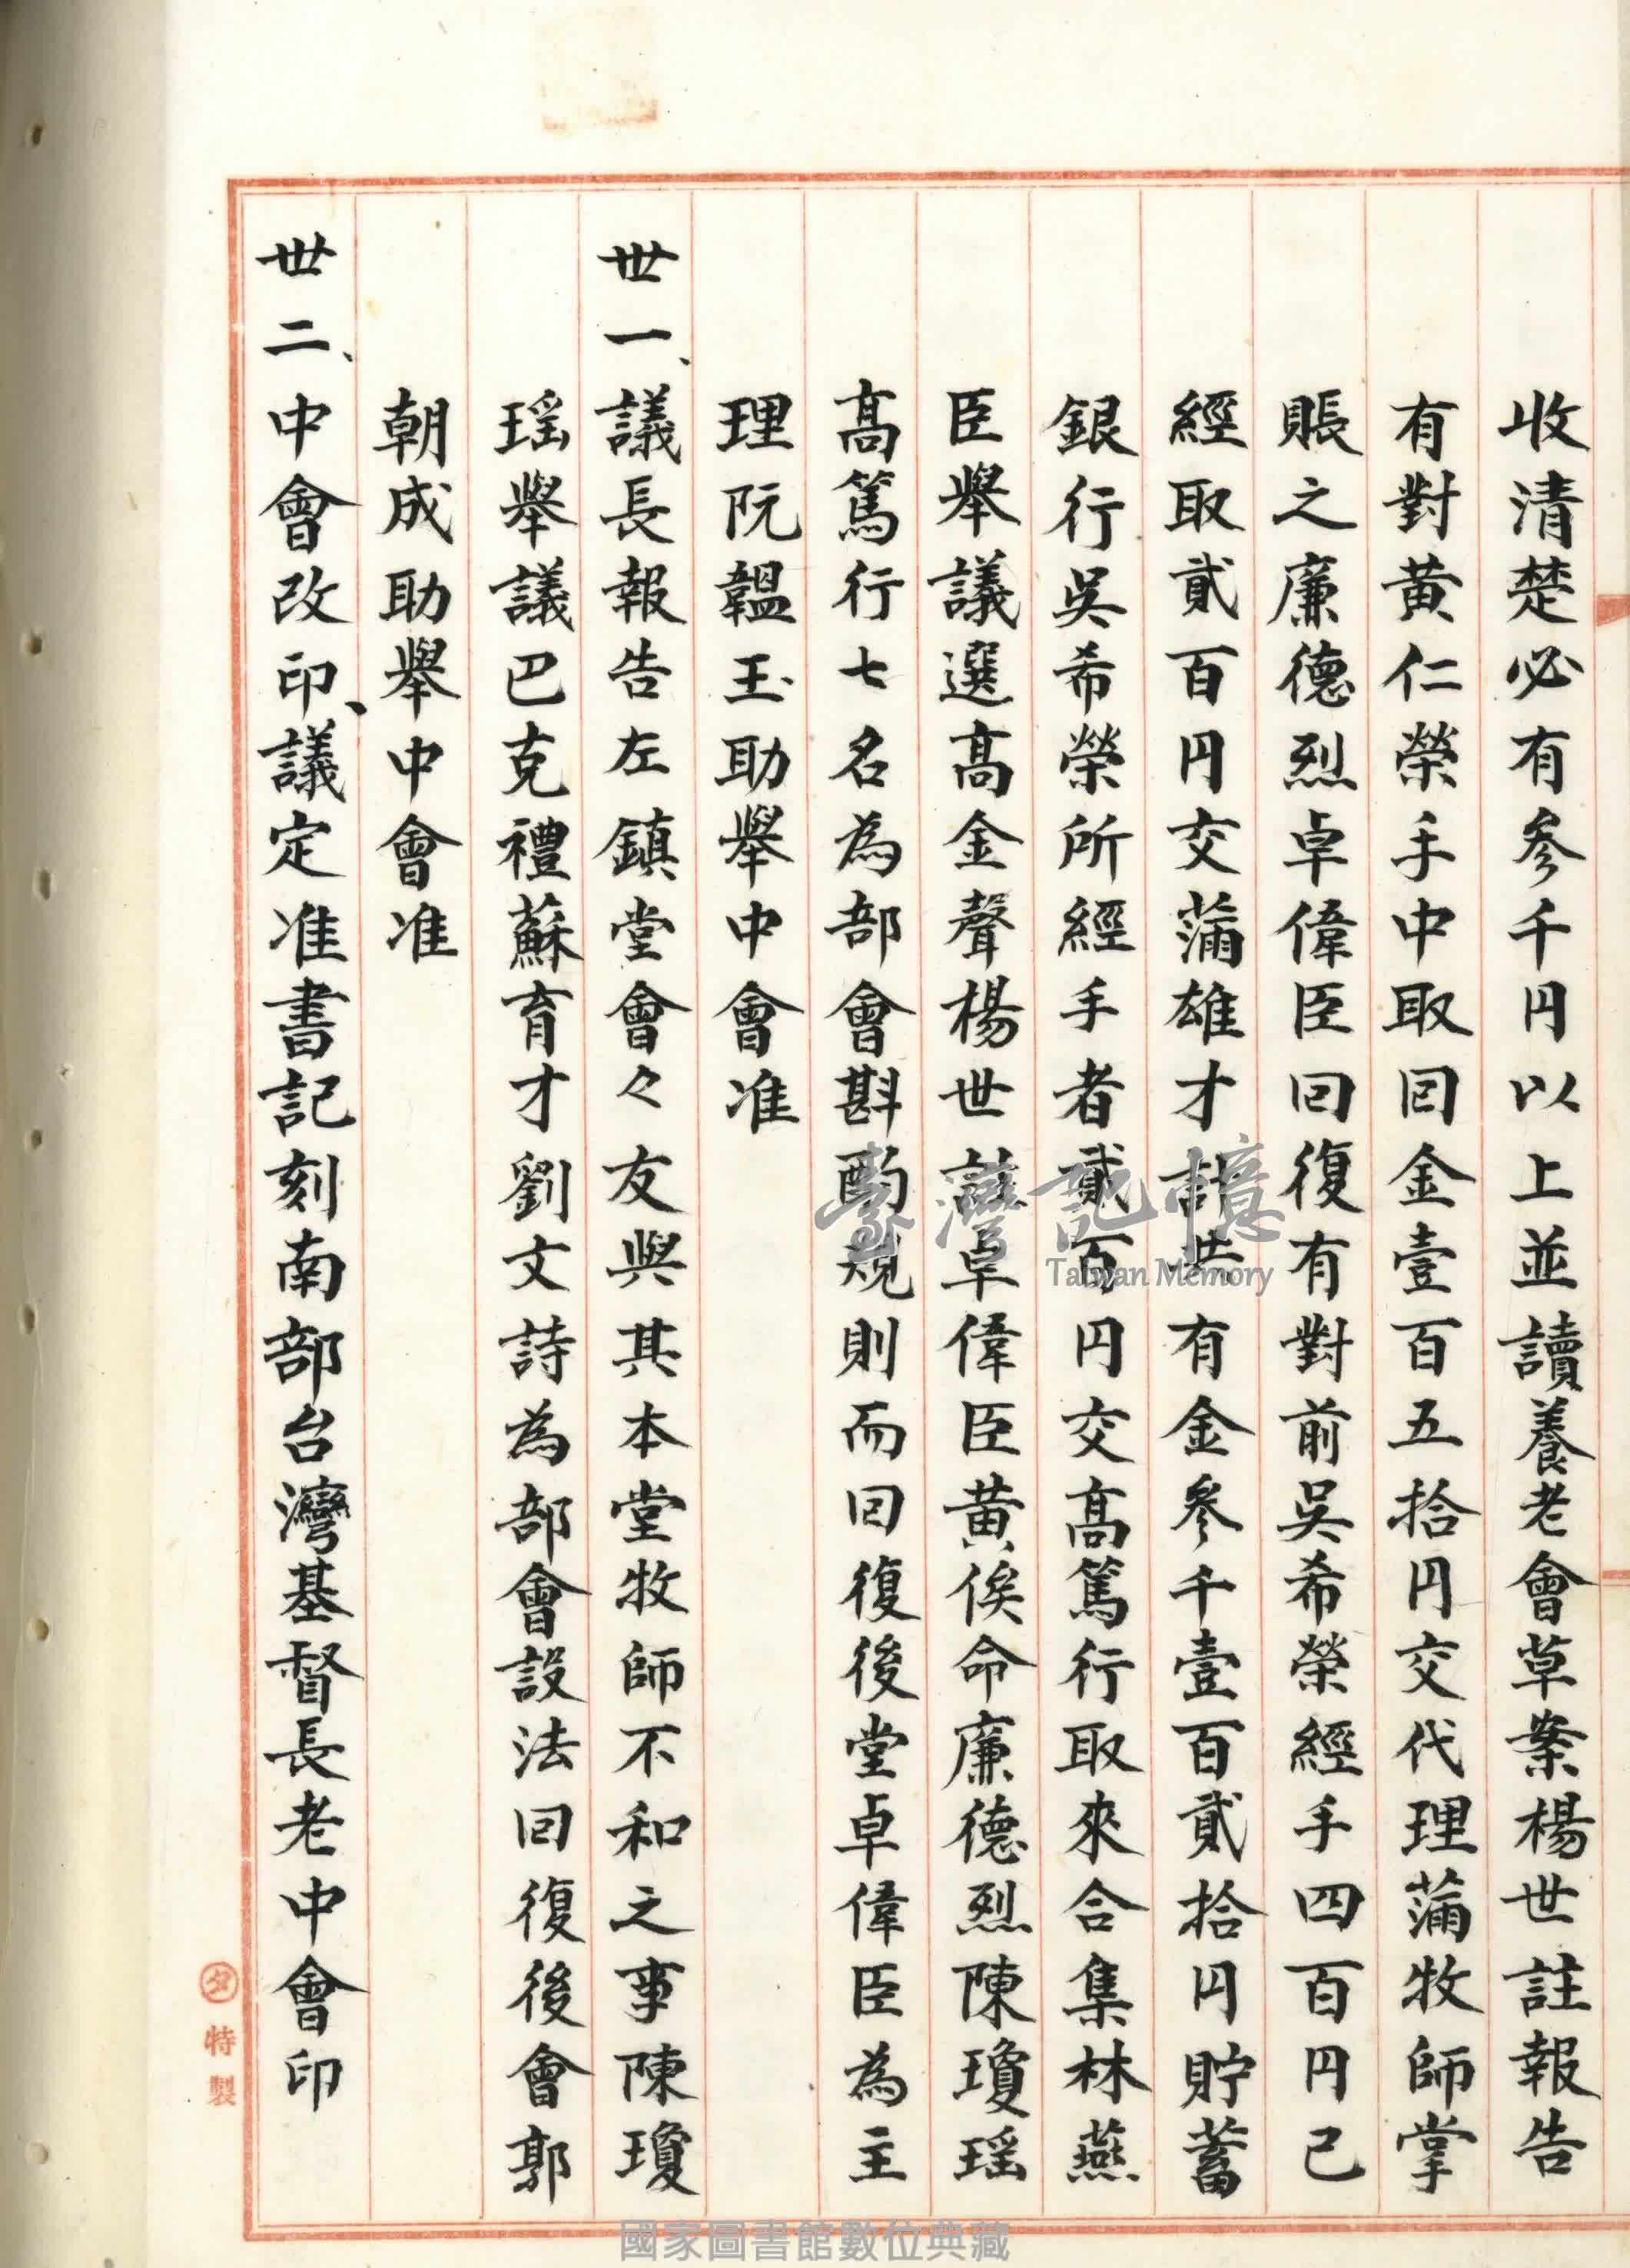 收清楚必有參千円以上並讀養老會草案楊世註報告
有對黃仁榮手中取囘金壹百五拾円交代理蒲牧師掌
賬之廉德烈卓偉臣囘復有對前吳希榮經手四百円已
經取貳百円交蒲雄才計共有金參千壹百貳拾円貯蓄
銀行吳希榮所經手者貳百円交髙篤行取來合集林燕
臣舉議選髙金聲楊世註卓偉臣黃俟命廉德烈陳瓊瑶
髙篤行七名為部會斟酌規則而囘復後堂卓偉臣為主
理阮韞玉助舉中會准
卅一、議長報告左鎮堂會々友與其本堂牧師不和之事陳瓊
瑶舉議巴克禮蘇育才劉文詩為部會設法囘復後會郭
朝成助舉中會准
卅二、中會改印、議定准書記刻南部台灣基督長老中會印
タ特製
臺灣記憶
Taiwan Memory
國家圖書館數位典藏